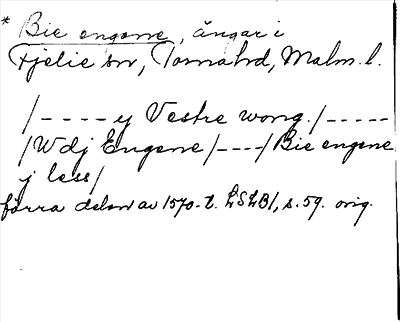 * Bie engene, ängar i
Fjelie sn, Torna hd, Malm. l.
/---- y Vestre wong. /-----
/Wdj Engene /----/ Bie engene
j less /
förra delen av 1570-t. LSLB1, s. 59. orig.